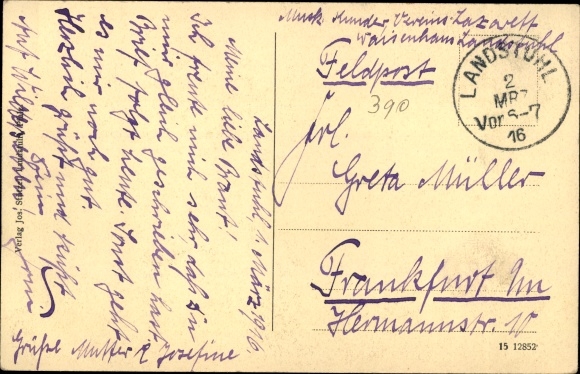 Musk. Kunder Vereins-Lazarett
Waisenhaus Landstuhl
Feldpost
LANDSTUHL
2
MRZ
Vor 6-7
16
390
Frl.
Greta Müller
Frankfurt Mn
Hermannstr. 10
15 12852
Landstuhl, 1. März 1916
Meine liebe Braut!
Ich freute mich sehr daß Du
mir gleich geschrieben hast
Brief folgt heute. Sonst geht
es mir noch gut
Herzlich grüßt und küßt
Dein
Grüße Mutter & Josefine
Verlag Jos.